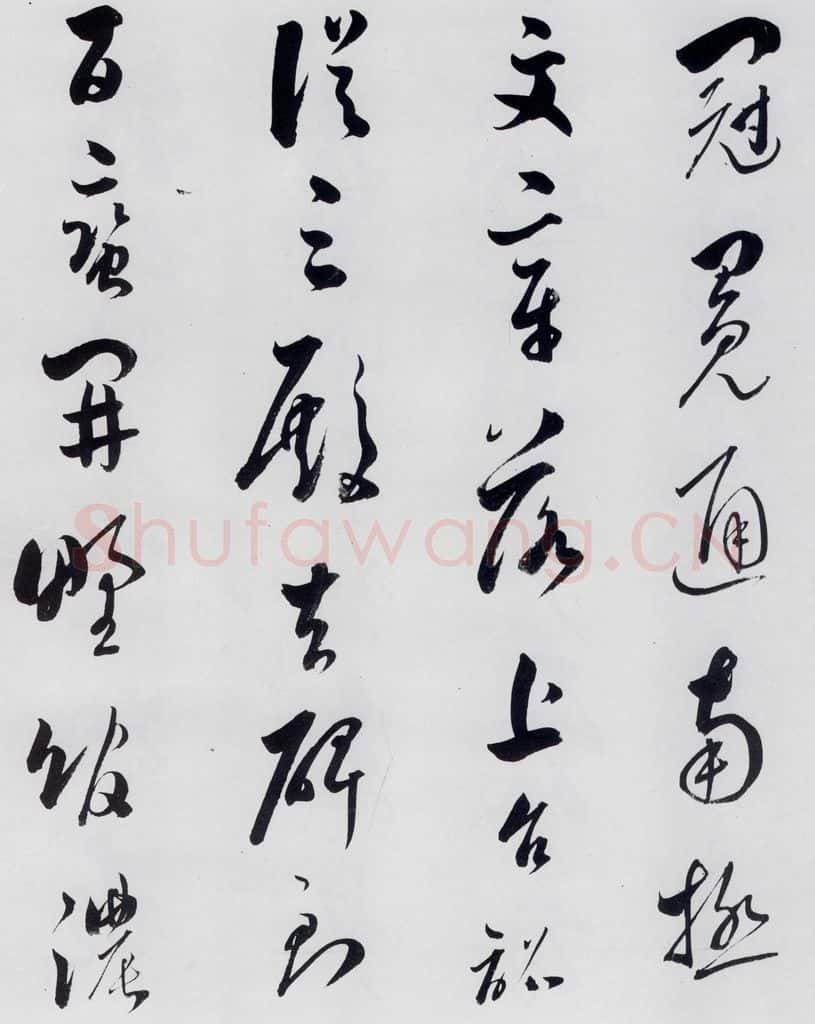 冠冕通南極
文章落上台詔
從三殿去碑到
百蠻開野館濃
Shufawang.CN